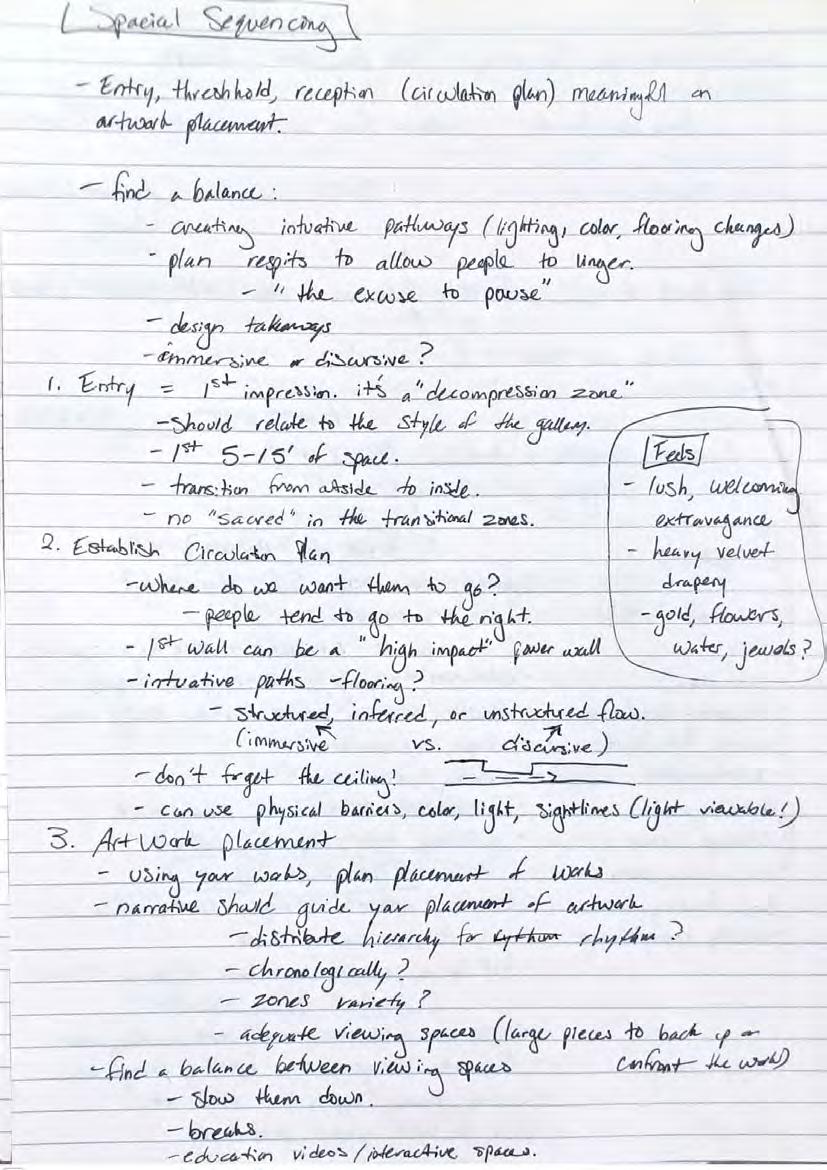 Spacial Sequencing
- Entry, threshhold, reception (circulation plan) meaningful on
artwork placement.
- find a balance:
- creating intuative pathways (lighting, color, flooring changes)
- plan respits to allow people to linger.
- "the excuse to pause"
- design takeaways
- immersive or discursive?
1. Entry = 1st impression. it's a "decompression zone"
- Should relate to the style of the gallery.
- 1st 5-15' of space.
- transition from outside to inside.
- no "sacred" in the transitional zones.
Feels
- lush, welcoming
extravagance
- heavy velvet
drapery
- gold, flowers,
water, jewels?
2. Establish Circulation Plan
- where do we want them to go?
- people tend to go to the right.
- 1st wall can be a "high impact" power wall
- intuative paths - flooring?
- structured, inferred, or unstructured flow.
(immersive vs. discursive)
- don't forget the ceiling!
- can use physical barriers, color, light, sightlines (light viewable!)
3. Art Work placement
- using your walls, plan placement of works
- narrative should guide your placement of artwork
- distribute hierarchy for rythum rhythm?
- chronologically?
- zones variety?
- adequate viewing spaces (large pieces to back up or
confront the work)
- find a balance between viewing spaces
- slow them down.
- breaks.
- education videos/interactive spaces.